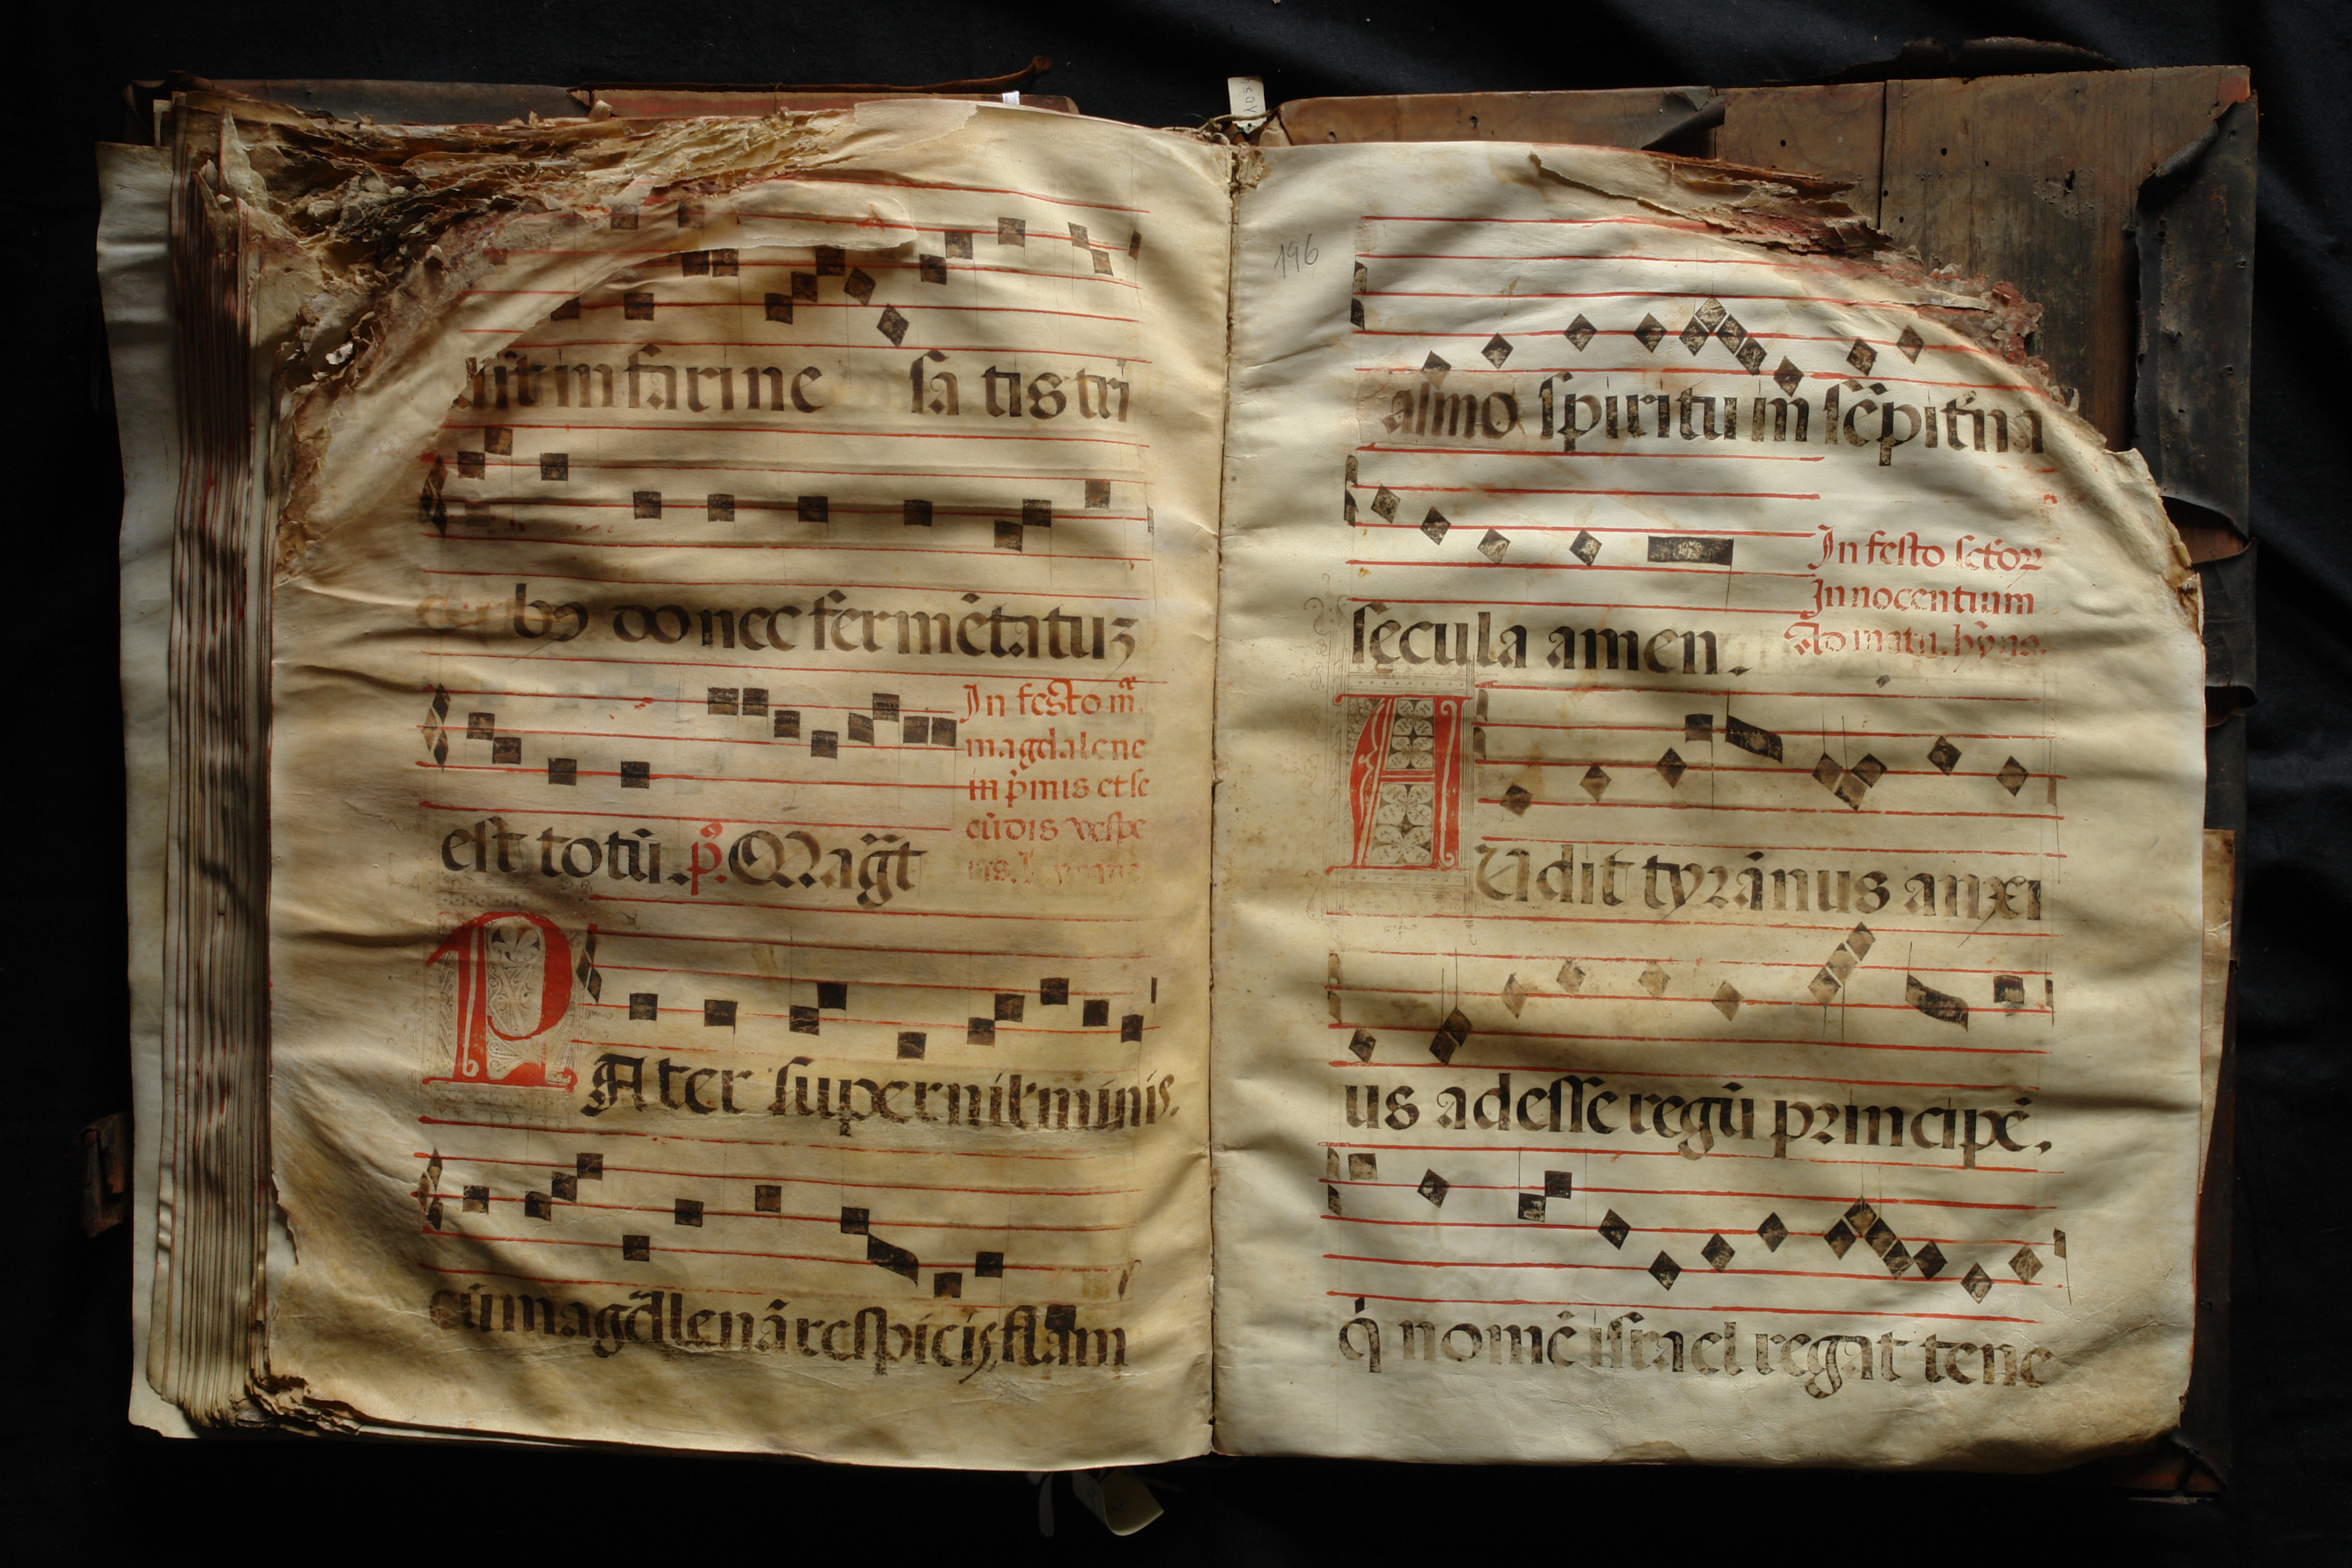 dit in farine sa tis tri
bꝰ donec fermẽtatuʒ
In festo m̃.
magdalene
in p̃mis et se
cũdis vespe
est totũ. p̃. Mag̃t
P
Ater superni luminis.
cũ magdalenã respicis, flam
196
almo spiritu in sẽpit̃na
In festo sctõꝝ
Innocentium
sęcula amen.
Ad matu. hỹn9.
A
Udit tyrãnus anxi
us adesse regũ principẽ.
q̇ nomẽ israel regat tene